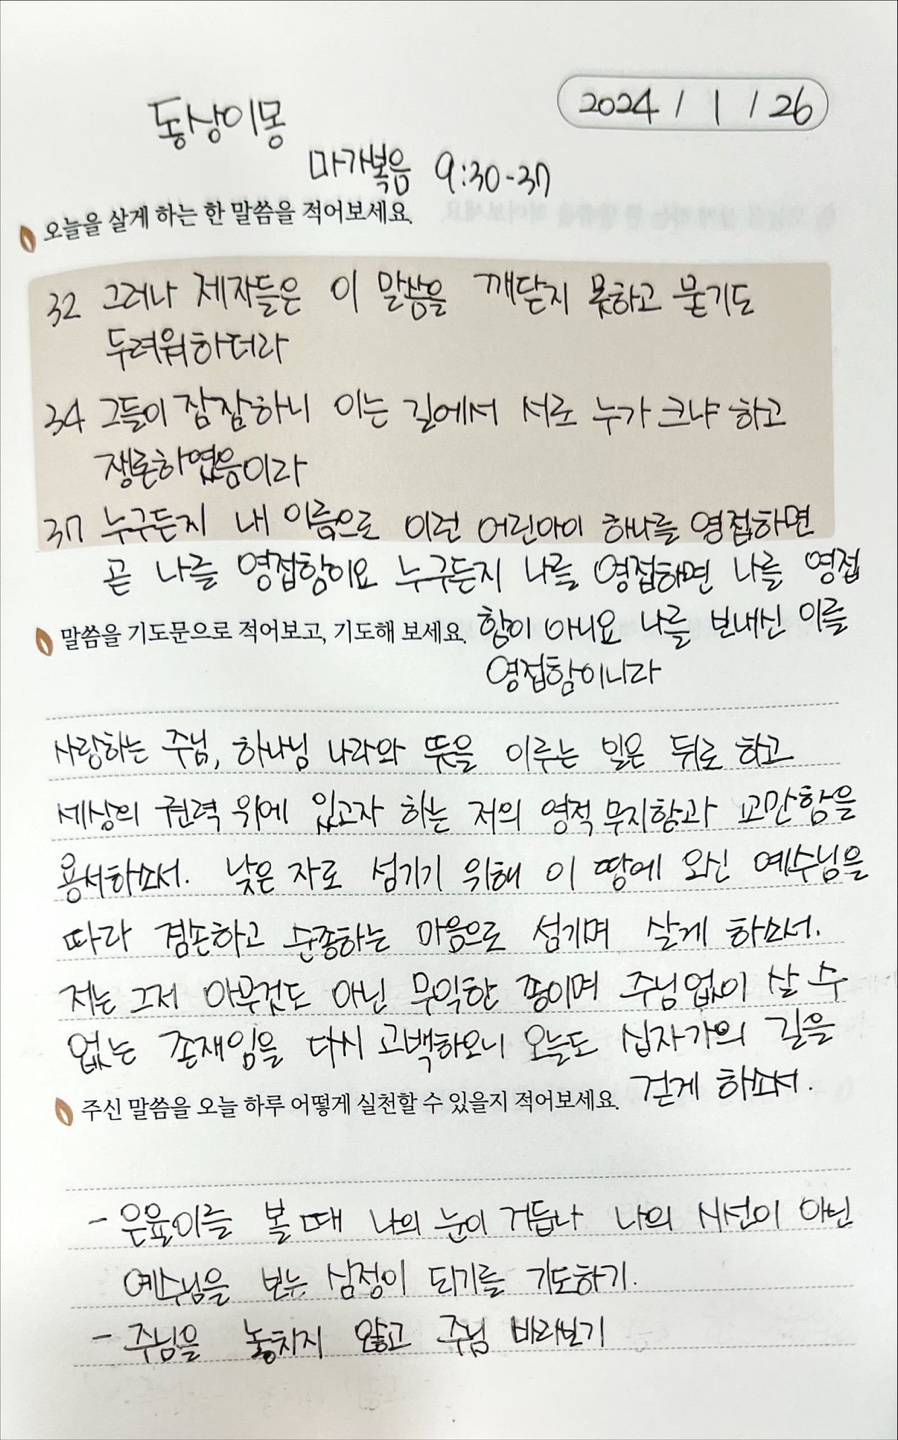 동상이몽
2024 / 1 / 26
마가복음 9:30-37
오늘을 살게 하는 한 말씀을 적어보세요.
32 그러나 제자들은 이 말씀을 깨닫지 못하고 묻기도
두려워하더라
34 그들이 잠잠하니 이는 길에서 서로 누가 크냐 하고
쟁론하였음이라
37 누구든지 내 이름으로 이런 어린아이 하나를 영접하면
곧 나를 영접함이요 누구든지 나를 영접하면 나를 영접
함이 아니요 나를 보내신 이를
영접함이니라
말씀을 기도문으로 적어보고, 기도해 보세요.
사랑하는 주님, 하나님 나라와 뜻을 이루는 일은 뒤로 하고
세상의 권력 위에 있고자 하는 저의 영적 무지함과 교만함을
용서하소서. 낮은 자로 섬기기 위해 이 땅에 오신 예수님을
따라 겸손하고 순종하는 마음으로 섬기며 살게 하소서.
저는 그저 아무것도 아닌 무익한 종이며 주님 없이 살 수
없는 존재임을 다시 고백하오니 오늘도 십자가의 길을
걷게 하소서.
주신 말씀을 오늘 하루 어떻게 실천할 수 있을지 적어보세요.
- 은율이를 볼 때 나의 눈이 거듭나 나의 시선이 아닌
예수님을 보는 심정이 되기를 기도하기.
- 주님을 놓치지 않고 주님 바라보기